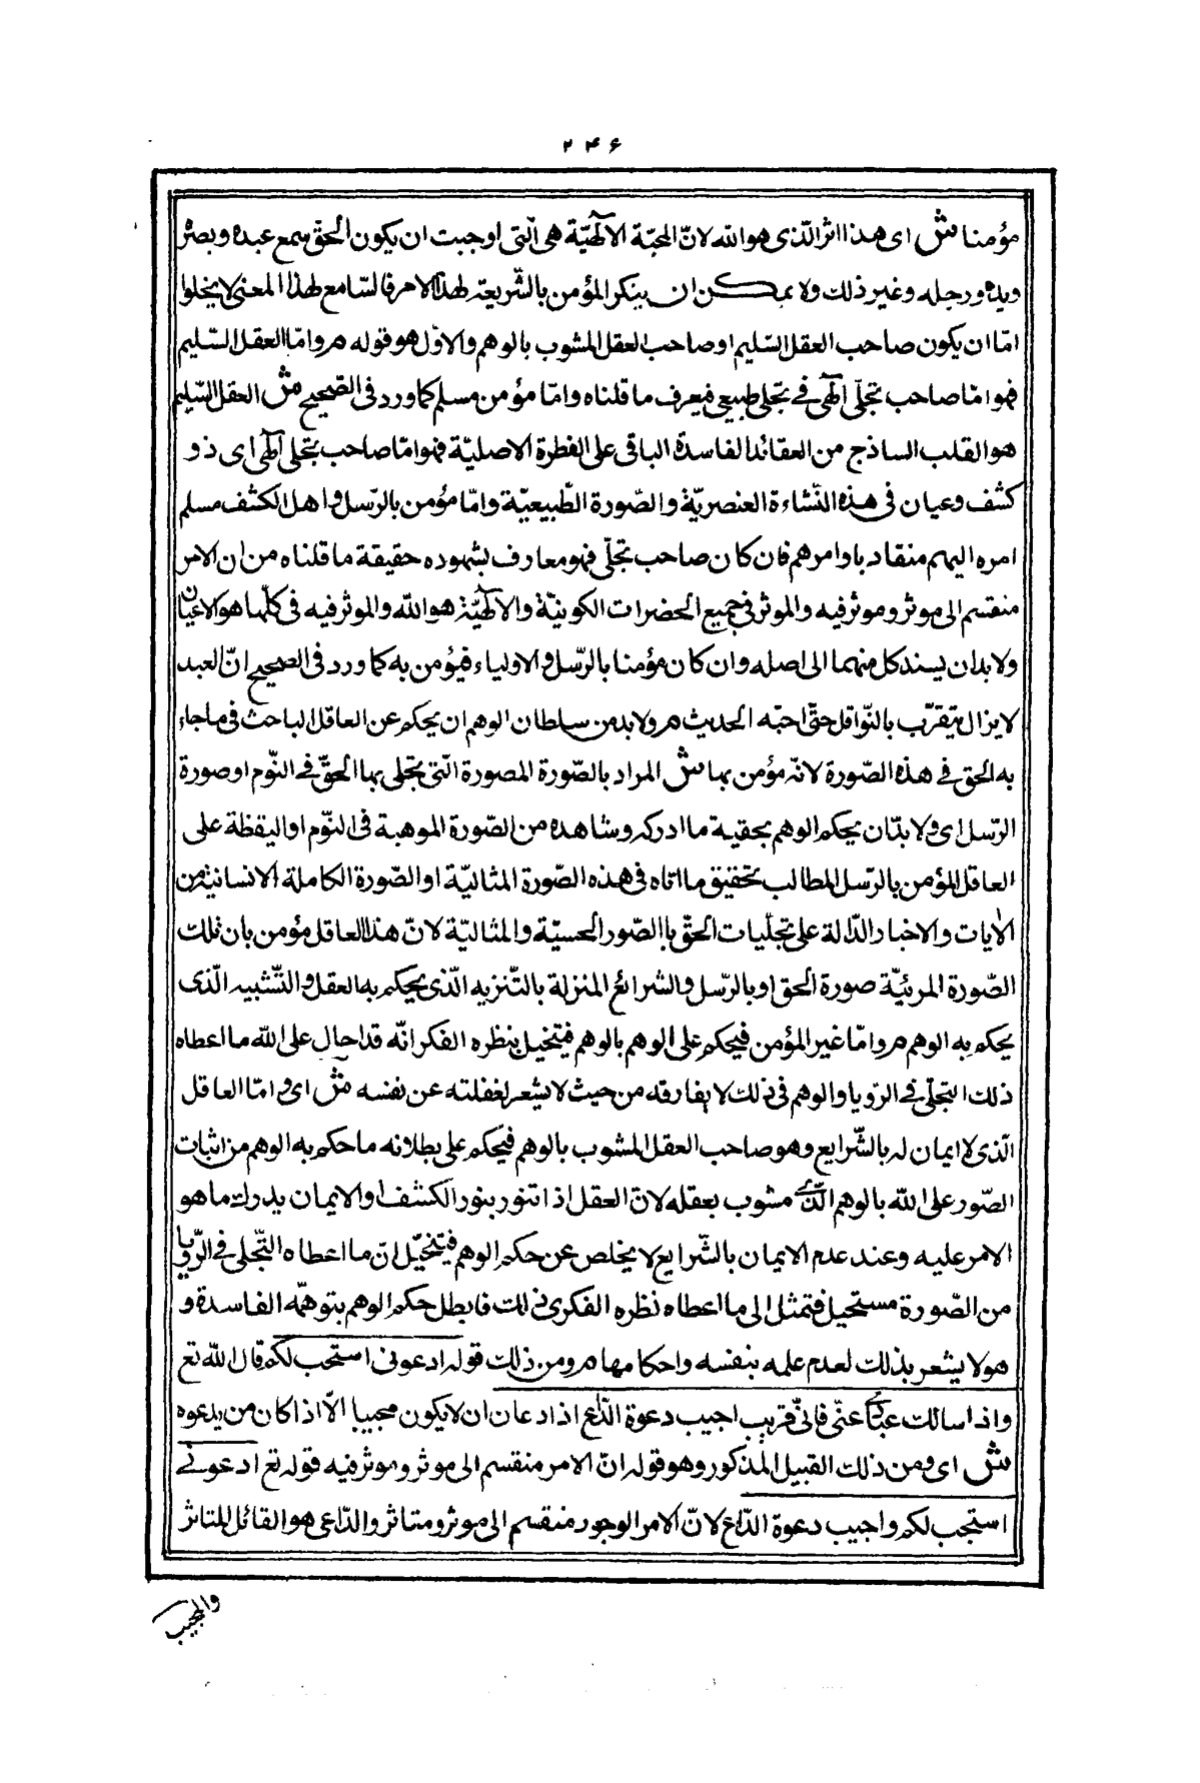 ۲۴۶
مؤمنا ش اى هذا اثر الّذى هو الله لانّ المحبّة الآلهيّة هى الّتى اوجبت ان يكون الحقّ سمع عبده وبصره
ويده ورجله وغير ذلك ولا يمكن ان ينكر المؤمن بالشّريعة لهذا الامر فالسّامع لهذا المعنى لا يخلوا
امّا ان يكون صاحب العقل السّليم او صاحب العقل المشوب بالوهم والاوّل هو قوله م وامّا العقل السّليم
فهو امّا صاحب تجلّى آلهى فى تجلّى طبيعى فيعرف ما قلناه وامّا مؤمن مسلم كما ورد فى الصّحيح ش العقل السّليم
هو القلب الساذج من العقائد الفاسدة الباقى على الفطرة الاصليّة فهو امّا صاحب تجلى آلهى اى ذو
كشف وعيان فى هذه النّشاءة العنصريّة والصّورة الطّبيعيّة وامّا مؤمن بالرّسل و اهل الكشف مسلم
امره اليهم منقاد باوامرهم فان كان صاحب تجلّى فهو معارف بشهوده حقيقة ما قلناه من ان الامر
منقسم الى موثر وموثر فيه والموثر فى جميع الحضرات الكونيّة والآلهيّة هو الله والموثر فيه فى كلّها هو الاعيان
ولا بد ان يسند كل منهما الى اصله وان كان مؤمنا بالرّسل و الاولياء فيؤمن به كما ورد فى الصحيح انّ العبد
لا يزال يتقرّب بالنّوافل حتّى احبّه الحديث م ولا بد من سلطان الوهم ان يحكم عن العاقل الباحث فى ما جاء
به الحق فى هذه الصّورة لانّه مؤمن بها ش المراد بالصّورة المصورة الّتى تجلى بها الحقّ فى النّوم او صورة
الرّسل اى ولا بدّ ان يحكم الوهم بحقية ما ادركه وشاهده من الصّورة الموهبة فى النّوم او اليقظة على
العاقل المؤمن بالرّسل المطالب بتحقيق ما اتاه فى هذه الصّورة المثاليّة او الصّورة الكاملة الانسانيّة من
الآيات والاخبار الدّالة على تجلّيات الحقّ بالصّور الحسيّة والمثاليّة لانّ هذا العاقل مؤمن بان تلك
الصّورة المرئيّة صورة الحق او بالرّسل والشرائع المنزلة بالتّنزيه الّذى يحكم به العقل والتّشبيه الّذى
يحكم به الوهم م وامّا غير المؤمن فيحكم على الوهم بالوهم فيتخيل بنظره الفكر انّه قد احال على الله ما اعطاه
ذلك التجلّى فى الرّويا والوهم فى ذلك لا يفارقه من حيث لا يشعر لغفلته عن نفسه ش اى وامّا العاقل
الّذى لا ايمان له بالشّرايع وهو صاحب العقل المشوب بالوهم فيحكم على بطلانه ما حكم به الوهم من اثبات
الصّور على الله بالوهم الّذى مشوب بعقله لانّ العقل اذا تنور بنور الكشف او الايمان يدرك ما هو
الامر عليه وعند عدم الايمان بالشّرايع لا يخلص عن حكم الوهم فيتخيّل انّ ما اعطاه التّجلى فى الرّويا
من الصّورة مستحيل فتمثل الى ما اعطاه نظره الفكرى فى ذلك فابطل حكم الوهم بتوهمّه الفاسدة و
هو لا يشعر بذلك لعدم علمه بنفسه واحكامها م ومن ذلك قوله ادعونى استجب لكم قال الله تع
واذا سالك عبادى عنّى فانّى قريب اجيب دعوة الدّاع اذا دعان ان لا يكون مجيبا الّا اذا كان من يدعوه
ش اى ومن ذلك القبيل المذكور وهو قوله انّ الامر منقسم الى موثر وموثر فيه قوله تع ادعونى
استجب لكم واجيب دعوة الدّاع لانّ الامر الوجود منقسم الى موثر ومتاثر والدّاعى هو القائل للمتاثر
والمجيب